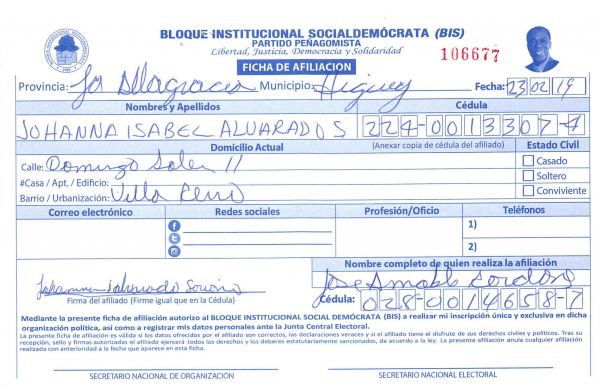 BLOQUE INSTITUCIONAL SOCIALDEMÓCRATA (BIS)
PARTIDO PEÑAGOMISTA
Libertad, Justicia, Democracia y Solidaridad
106677
FICHA DE AFILIACION
Provincia: La Altagracia Municipio: Higuey Fecha: 23 02 19
Nombres y Apellidos Cédula
JOHANNA ISABEL ALVARADO S 224-0013307-4
Domicilio Actual (Anexar copia de cédula del afiliado) Estado Civil
Calle: Domingo 11 Casado
#Casa / Apt. / Edificio: Soltero
Barrio / Urbanización: Villa Conviviente
Correo electrónico Redes sociales Profesión/Oficio Teléfonos
1)
2)
Nombre completo de quien realiza la afiliación
Johanna Alvarado
Jose Amable Cordero
Firma del afiliado (Firme igual que en la Cédula)
Cédula: 028-0014658-7
Mediante la presente ficha de afiliación autorizo al BLOQUE INSTITUCIONAL SOCIAL DEMÓCRATA (BIS) a realizar mi inscripción única y exclusiva en dicha
organización política, así como a registrar mis datos personales ante la Junta Central Electoral.
La presente ficha de afiliación es válida si los datos ofrecidos por el afiliado son correctos, las declaraciones veraces y si el afiliado tiene el disfrute de sus derechos civiles y políticos. Tras su
recepción, sello y firmas autorizadas el afiliado ejercerá todos los derechos y los deberes estatutariamente sancionados, de acuerdo a la ley. La presente afiliación anula cualquier afiliación
realizada con anterioridad a la fecha que aparece en esta ficha.
SECRETARIO NACIONAL DE ORGANIZACIÓN SECRETARIO NACIONAL ELECTORAL